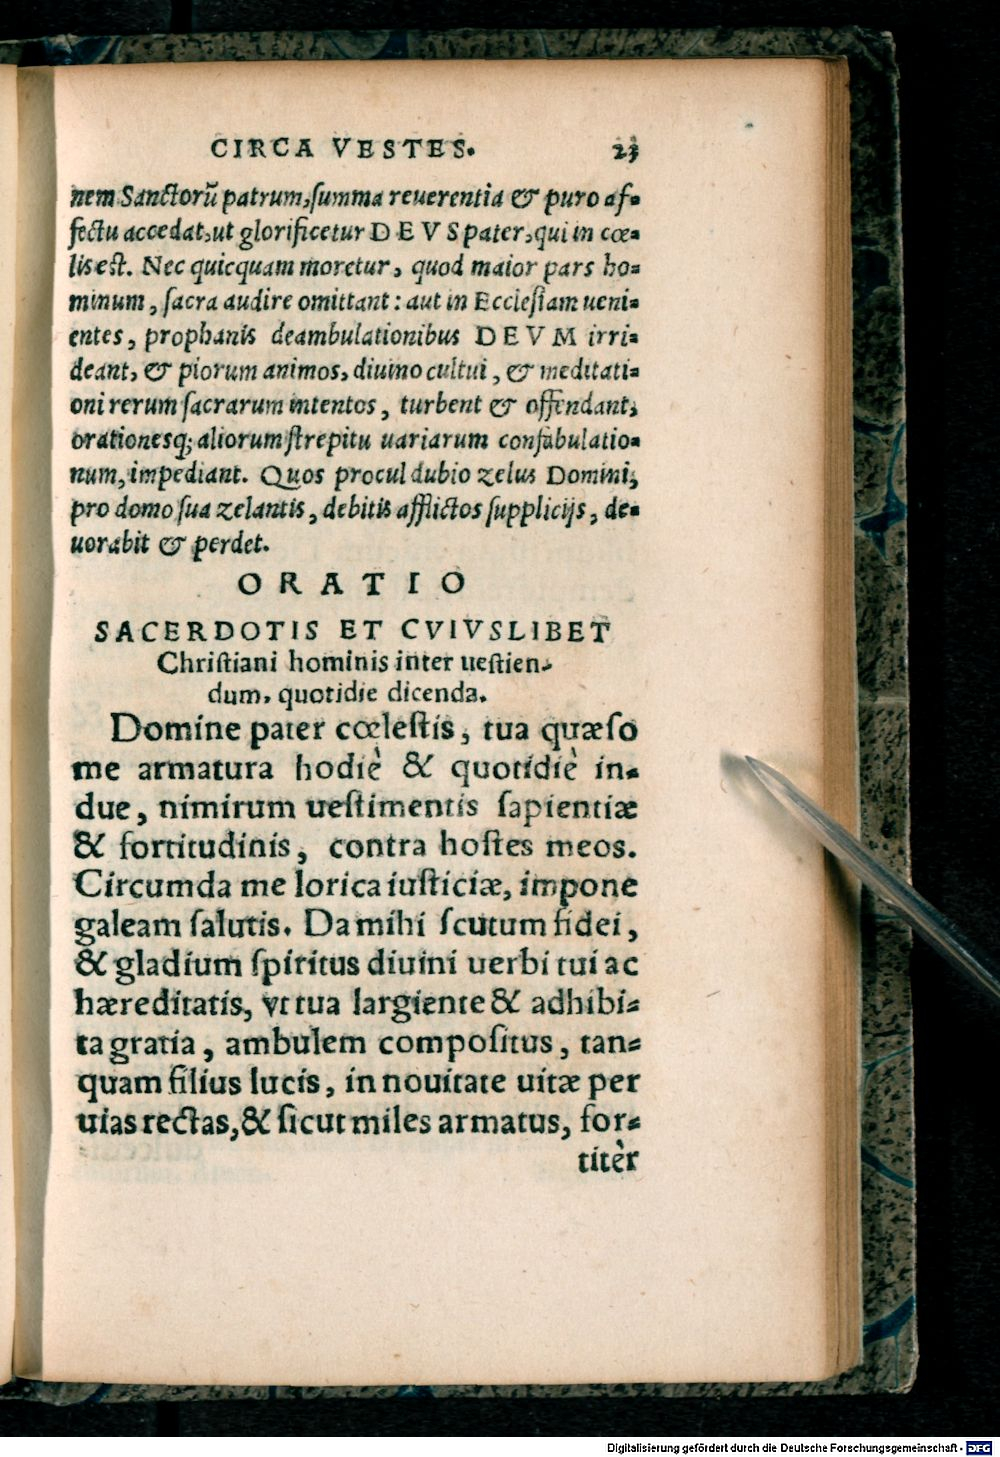 CIRCA VESTES. 23
nem Sanctorũ patrum, summa reuerentia & puro af-
fectu accedat, ut glorificetur DEVS pater, qui in cœ-
lis est. Nec quicquam moretur, quod maior pars ho-
minum, sacra audire omittant: aut in Ecclesiam ueni-
entes, prophanis deambulationibus DEVM irri-
deant, & piorum animos, diuino cultui, & meditati-
oni rerum sacrarum intentos, turbent & offendant,
orationesq; aliorum strepitu uariarum confabulatio-
num, impediant. Quos procul dubio zelus Domini,
pro domo sua zelantis, debitis afflictos supplicijs, de-
uorabit & perdet.
ORATIO
SACERDOTIS ET CVIVSLIBET
Christiani hominis inter uestien-
dum, quotidie dicenda.
Domine pater cœlestis, tua quæso
me armatura hodiè & quotidiè in-
due, nimirum uestimentis sapientiæ
& fortitudinis, contra hostes meos.
Circumda me lorica iusticiæ, impone
galeam salutis. Da mihi scutum fidei,
& gladium spiritus diuini uerbi tui ac
hæreditatis, vt tua largiente & adhibi-
ta gratia, ambulem compositus, tan-
quam filius lucis, in nouitate uitæ per
uias rectas, & sicut miles armatus, for-
titèr
Digitalisierung gefördert durch die Deutsche Forschungsgemeinschaft - DFG